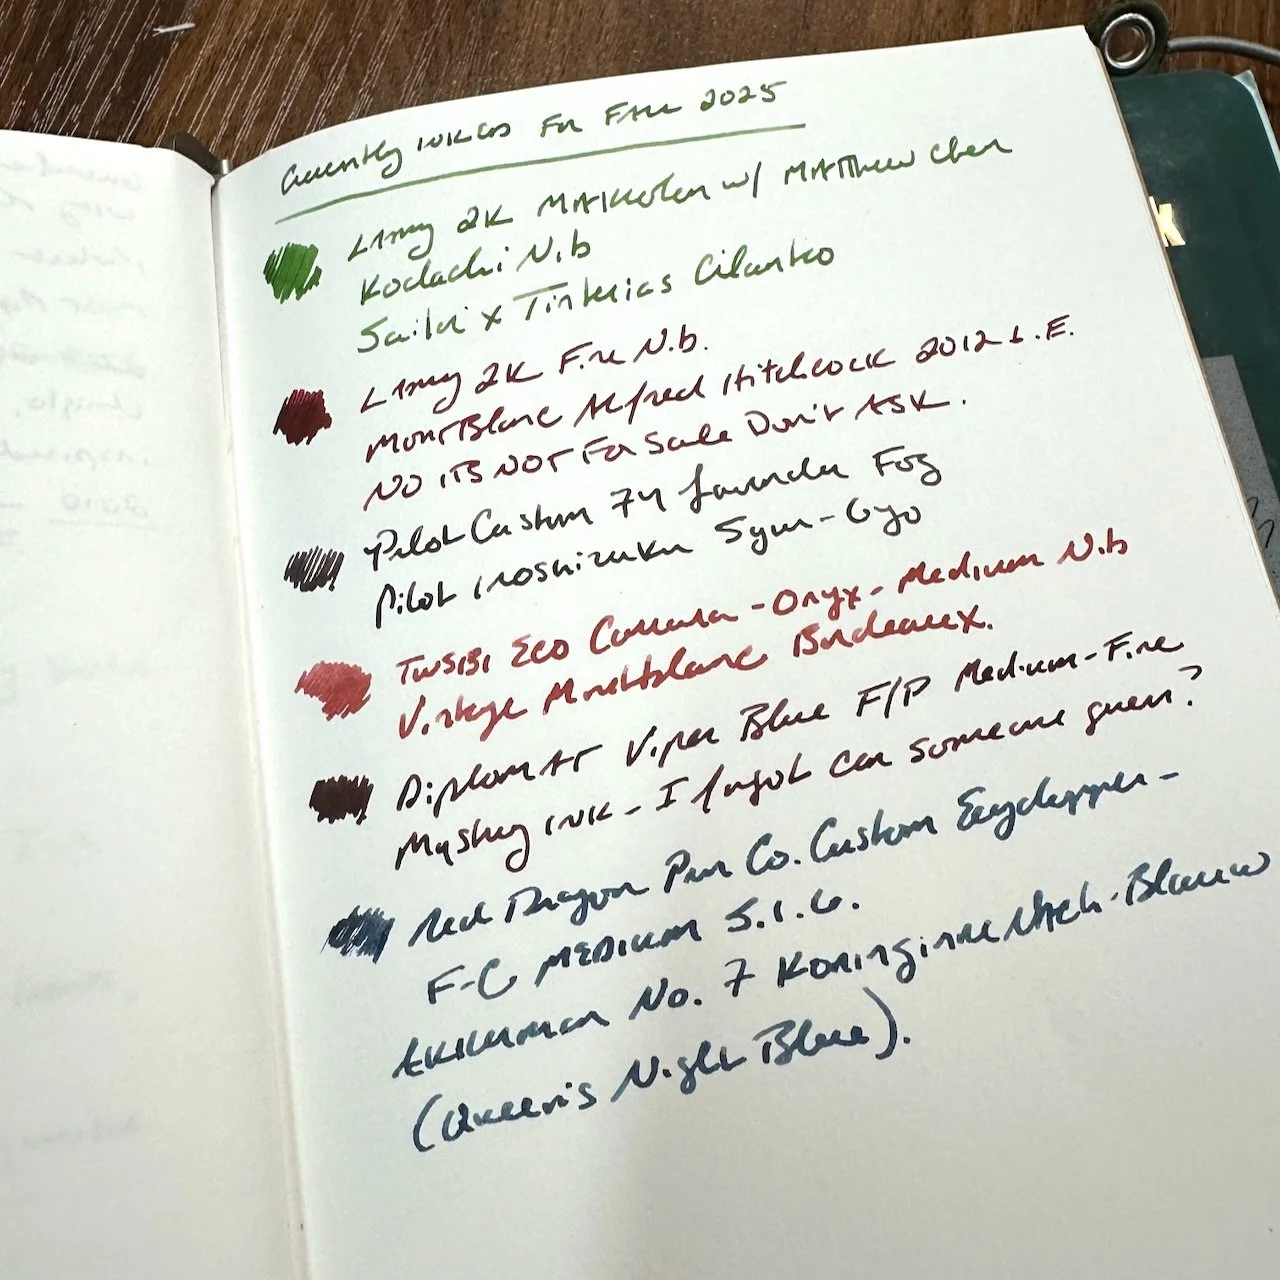 Currently inked for Fall 2025
Lamy 2K Makrolon w/ Matthew Chen
Kodachi Nib
Sailor x Tinterias Cilantro
Lamy 2K Fine Nib.
MontBlanc Alfred Hitchcock 2012 L.E.
No its not For Sale Don't Ask.
Pilot Custom 74 Lavender Fog
Pilot Iroshizuku Syun-Gyo
TWSBI Eco Carrara - Onyx - Medium Nib
Vintage Montblanc Bordeaux.
Diplomat Viper Blue F/P Medium-Fine
Mystery ink - I forgot can someone guess?
Red Dragon Pen Co. Custom -
F-C Medium S.I.G.
Akkerman No. 7 Koninginne Nach-Blauw
(Queen's Night Blue).
K